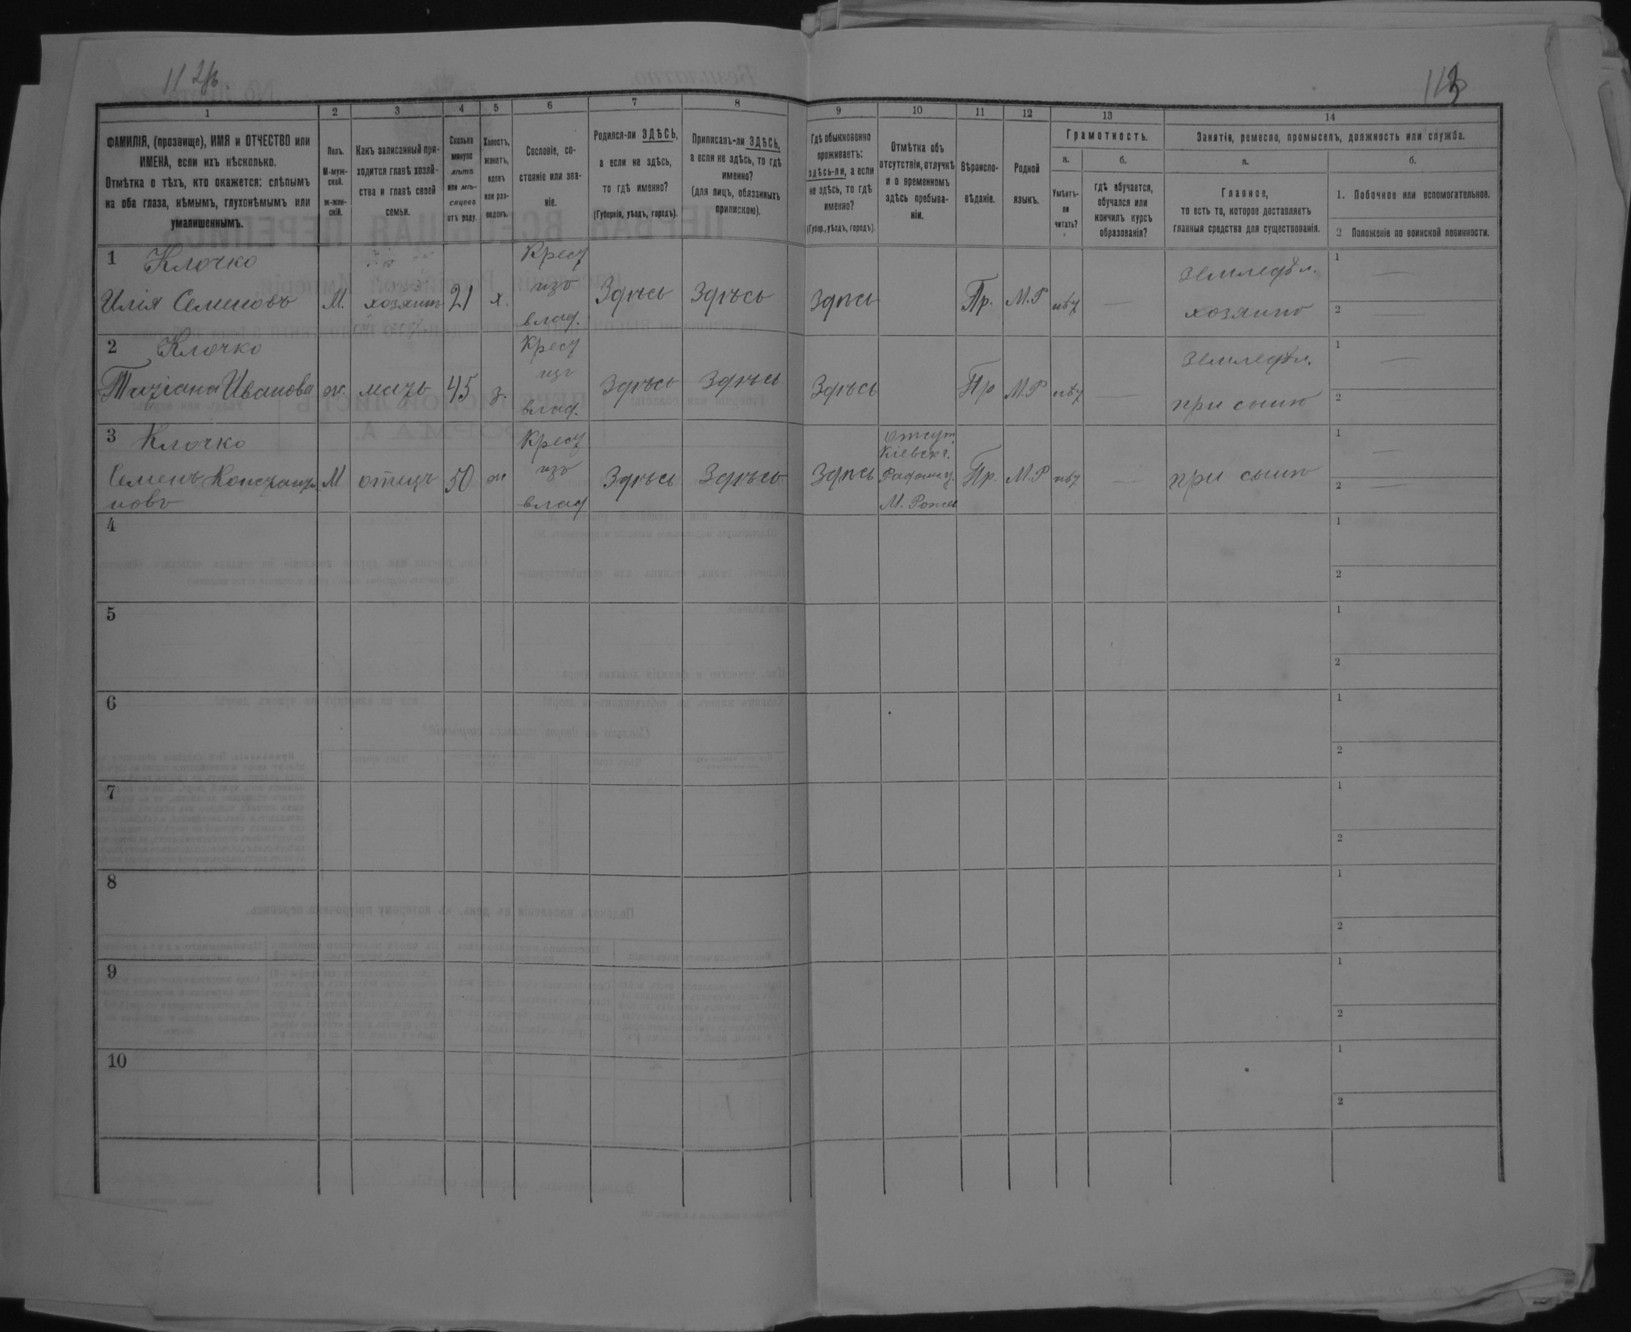 113
1 2 3 4 5 6 7 8 9 10 11 12 13 14
ФАМИЛІЯ, (прозвище), ИМЯ и ОТЧЕСТВО или
ИМЕНА, если ихъ нѣсколько.
Отмѣтка о тѣхъ, кто окажется: слѣпымъ
на оба глаза, нѣмымъ, глухонѣмымъ или
умалишеннымъ.
Полъ.
М-муж-
ской.
ж-жен-
скій.
Какъ записанный при-
ходится главѣ хозяй-
ства и главѣ своей
семьи.
Сколько
минуло
лѣтъ
или мѣ-
сяцевъ
отъ роду.
Холостъ,
женатъ,
вдовъ
или раз-
веденъ.
Сословіе, со-
стояніе или зва-
ніе.
Родился-ли ЗДѢСЬ,
а если не здѣсь,
то гдѣ именно?
(Губернія, уѣздъ, городъ).
Приписанъ-ли ЗДѢСЬ,
а если не здѣсь, то гдѣ
именно?
(для лицъ, обязанныхъ
припискою).
Гдѣ обыкновенно
проживаетъ:
здѣсь-ли, а если
не здѣсь, то гдѣ
именно?
(Губер., уѣздъ, городъ).
Отмѣтка объ
отсутствіи, отлучкѣ
и о временномъ
здѣсь пребыва-
ніи.
Вѣроиспо-
вѣданіе.
Родной
языкъ.
Грамотность.
а.
Умѣетъ-
ли
читать?
б.
гдѣ обучается,
обучался или
кончилъ курсъ
образованія?
Занятіе, ремесло, промыселъ, должность или служба.
а.
Главное,
то есть то, которое доставляетъ
главныя средства для существованія.
б.
1. Побочное или вспомогательное.
2 Положеніе по воинской повинности.
1 Клочко
Илія Семеновъ М. хозяинъ 21 х. Крест изъ влад. Здѣсь Здѣсь Здѣсь Пр. М.Р нѣт — Земледѣл. хозяинъ 1 — 2 —
2 Клочко
Татіана Иванова ж. мать 45 з. Крест изъ влад. Здѣсь Здѣсь Здѣсь Пр М.Р нѣт Земледѣл. при сынѣ 1 — 2 —
3 Клочко
Семенъ Константи
новъ М отецъ 50 ж Крест изъ влад Здѣсь Здѣсь Здѣсь отсут. Кіевск г. Радомыс. М. Пр. М.Р нѣт — при сынѣ 1 — 2 —
4 1 2
5 1 2
6 1 2
7 1 2
8 1 2
9 1 2
10 1 2